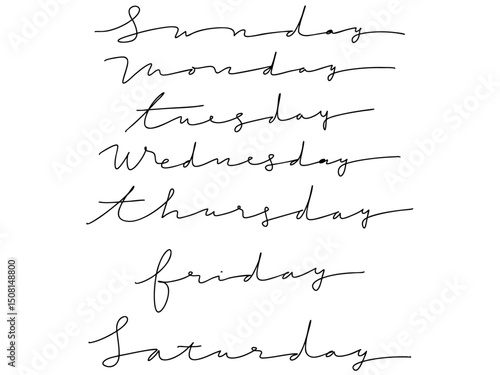 Sunday
Monday
tuesday
Wednesday
thursday
friday
Saturday
Adobe Stock | #1508148800